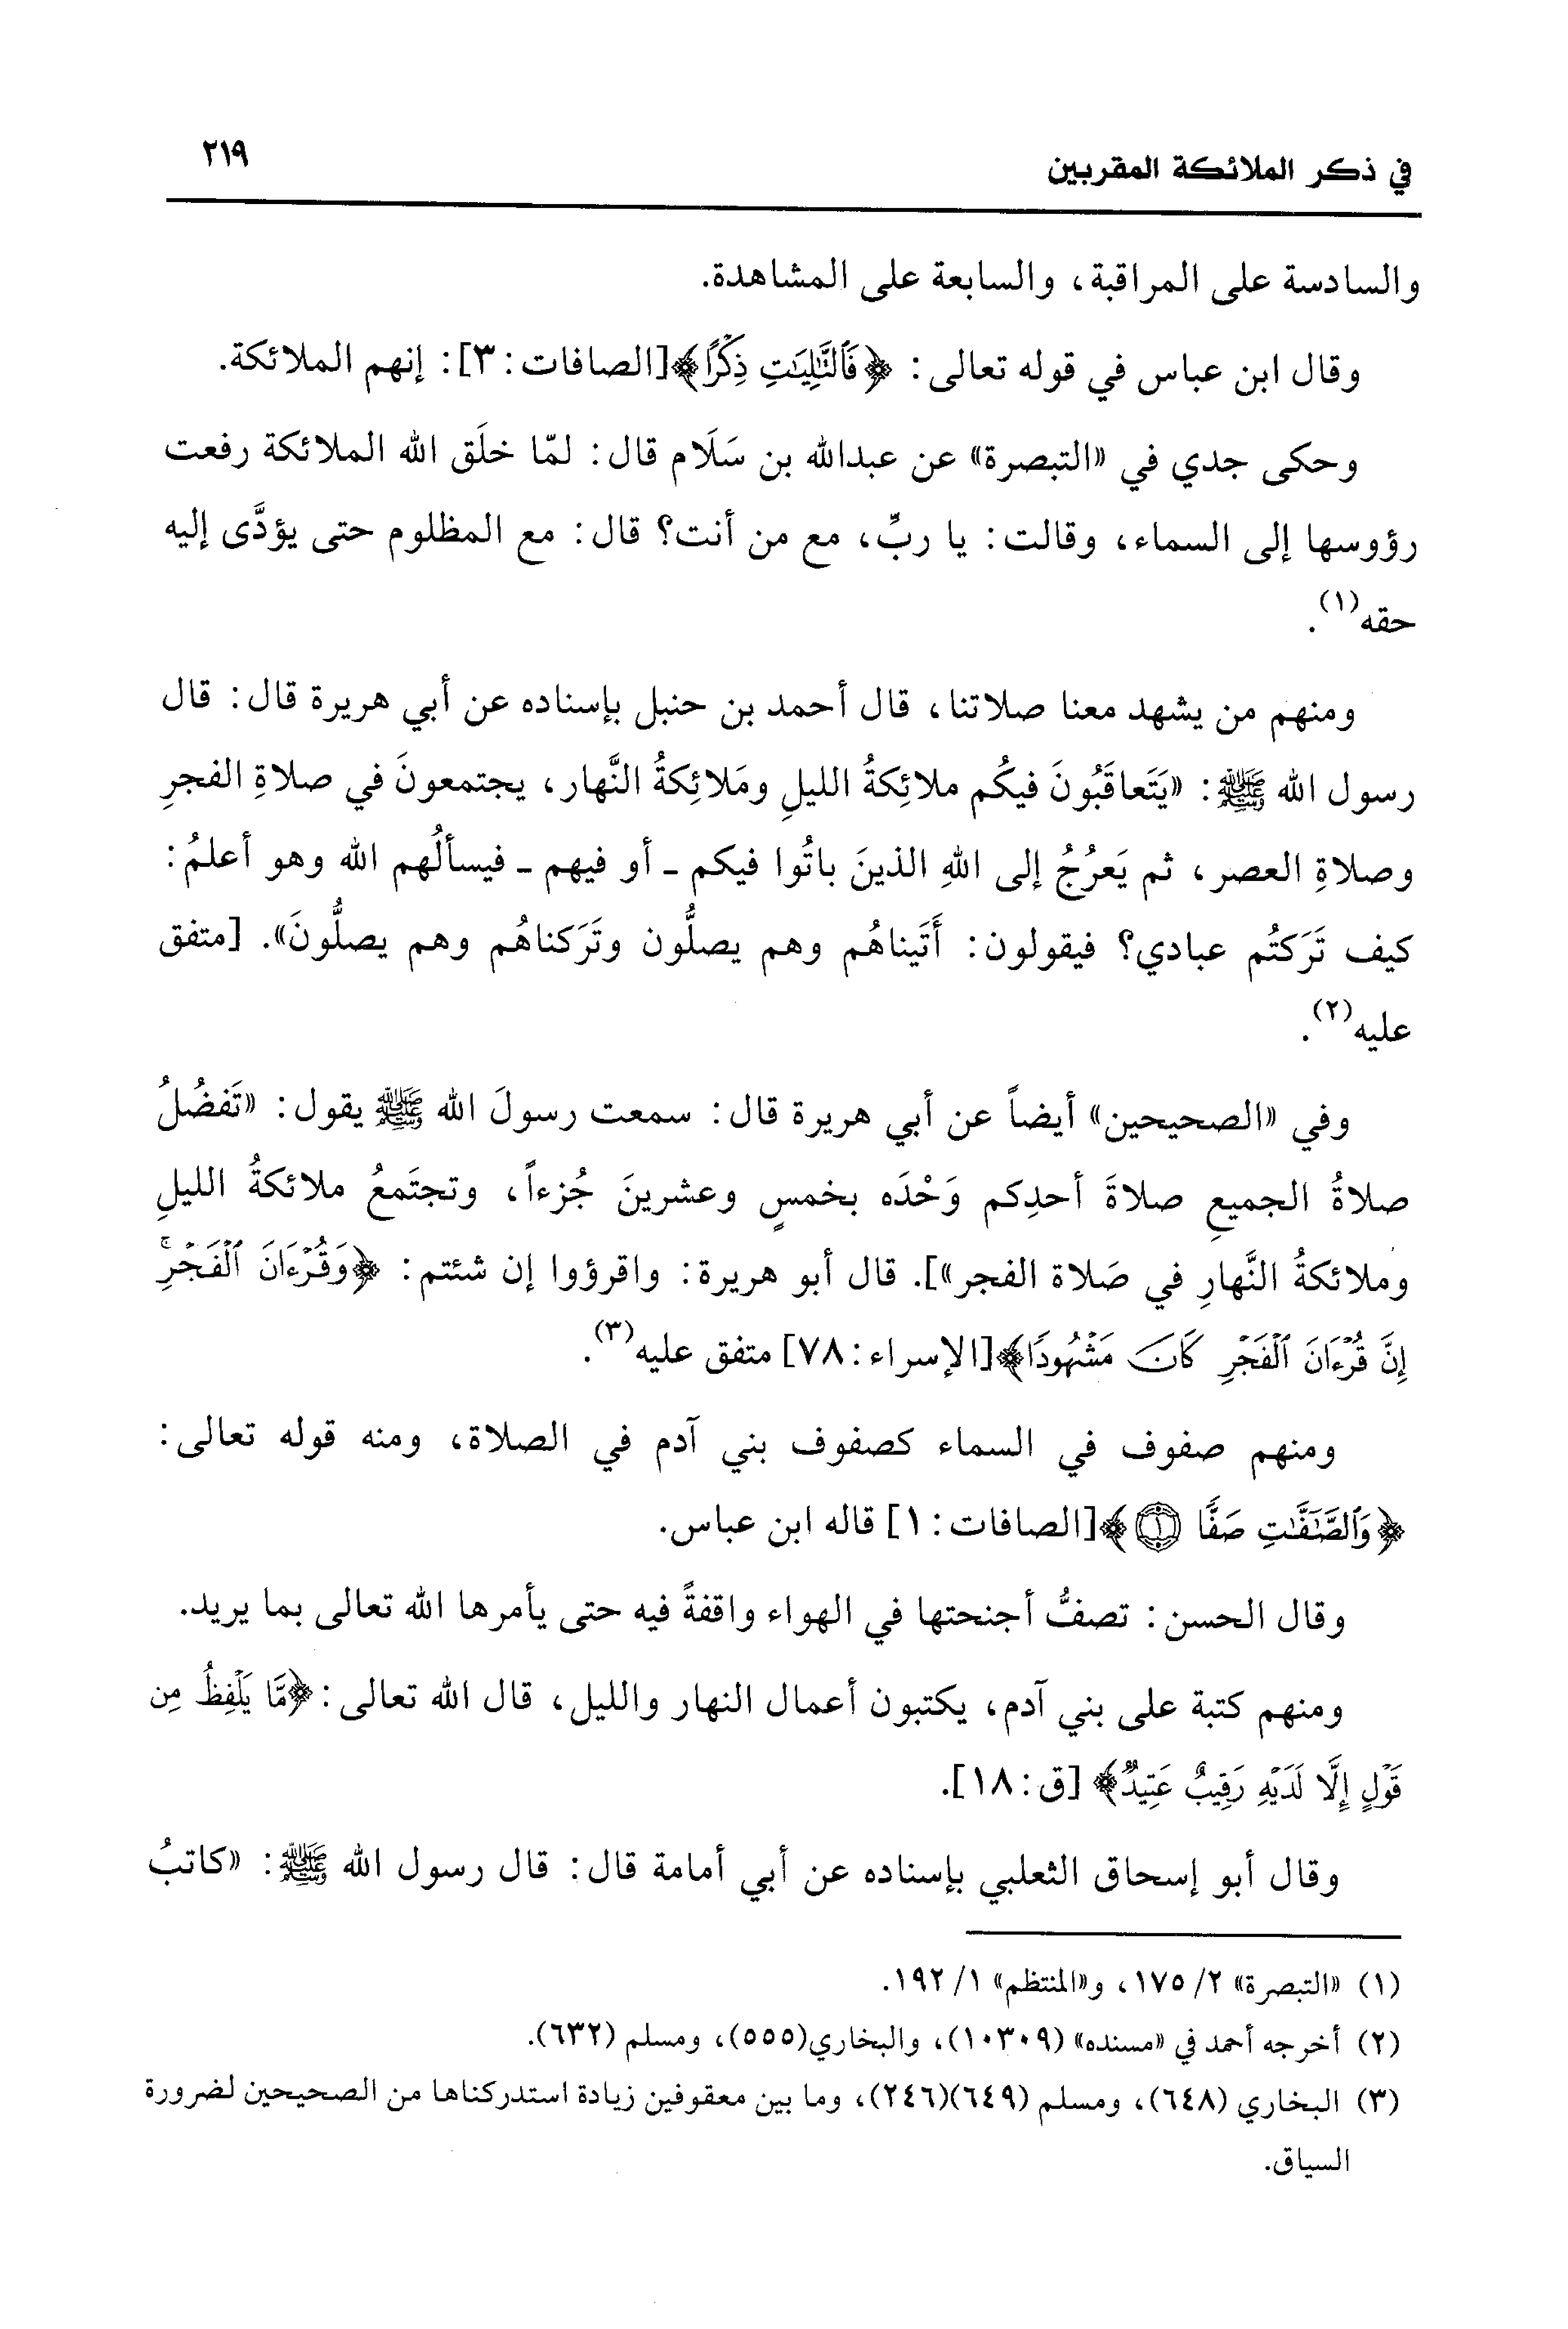 في ذكر الملائكة المقربين ٢١٩
والسادسة على المراقبة، والسابعة على المشاهدة.
وقال ابن عباس في قوله تعالى: ﴿فَٱلتَّٰلِيَٰتِ ذِكۡرًا﴾[الصافات: ٣]: إنهم الملائكة.
وحكى جدي في «التبصرة» عن عبدالله بن سَلَام قال: لمّا خلَق الله الملائكة رفعت
رؤوسها إلى السماء، وقالت: يا ربِّ، مع من أنت؟ قال: مع المظلوم حتى يؤدَّى إليه
حقه(١).
ومنهم من يشهد معنا صلاتنا، قال أحمد بن حنبل بإسناده عن أبي هريرة قال: قال
رسول الله ﷺ: «يَتَعاقَبُونَ فيكُم ملائِكةُ الليلِ ومَلائِكةُ النَّهار، يجتمعونَ في صلاةِ الفجرِ
وصلاةِ العصر، ثم يَعرُجُ إلى اللهِ الذينَ باتُوا فيكم - أو فيهم - فيسألُهم الله وهو أعلمُ:
كيف تَرَكتُم عبادي؟ فيقولون: أَتَيناهُم وهم يصلُّون وتَرَكناهُم وهم يصلُّونَ». [متفق
عليه(٢).
وفي «الصحيحين» أيضاً عن أبي هريرة قال: سمعت رسولَ الله ﷺ يقول: «تَفضُلُ
صلاةُ الجميعِ صلاةَ أحدِكم وَحْدَه بخمسٍ وعشرينَ جُزءاً، وتجتَمعُ ملائكةُ الليلِ
وملائكةُ النَّهارِ في صَلاة الفجر»]. قال أبو هريرة: واقرؤوا إن شئتم: ﴿وَقُرۡءَانَ ٱلۡفَجۡرِۖ
إِنَّ قُرۡءَانَ ٱلۡفَجۡرِ كَانَ مَشۡهُودٗا﴾[الإسراء: ٧٨] متفق عليه(٣).
ومنهم صفوف في السماء كصفوف بني آدم في الصلاة، ومنه قوله تعالى:
﴿وَٱلصَّٰٓفَّٰتِ صَفّٗا ١﴾[الصافات: ١] قاله ابن عباس.
وقال الحسن: تصفُّ أجنحتها في الهواء واقفةً فيه حتى يأمرها الله تعالى بما يريد.
ومنهم كتبة على بني آدم، يكتبون أعمال النهار والليل، قال الله تعالى: ﴿مَّا يَلۡفِظُ مِن
قَوۡلٍ إِلَّا لَدَيۡهِ رَقِيبٌ عَتِيدٞ﴾ [ق: ١٨].
وقال أبو إسحاق الثعلبي بإسناده عن أبي أمامة قال: قال رسول الله ﷺ: «كاتبُ
(١) «التبصرة» ٢/ ١٧٥، و«المنتظم» ١/ ١٩٢.
(٢) أخرجه أحمد في «مسنده» (١٠٣٠٩)، والبخاري(٥٥٥)، ومسلم (٦٣٢).
(٣) البخاري (٦٤٨)، ومسلم (٦٤٩)(٢٤٦)، وما بين معقوفين زيادة استدركناها من الصحيحين لضرورة
السياق.